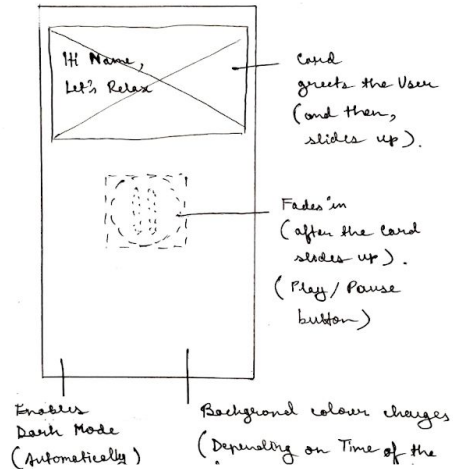 Hi Name,
Let's Relax
Card
greets the User
(and then,
slides up).
Fades in
(after the card
slides up).
(Play / Pause
button)
Enables
Dark Mode
(Automatically)
Backgrond colour changes
(Depending on Time of the